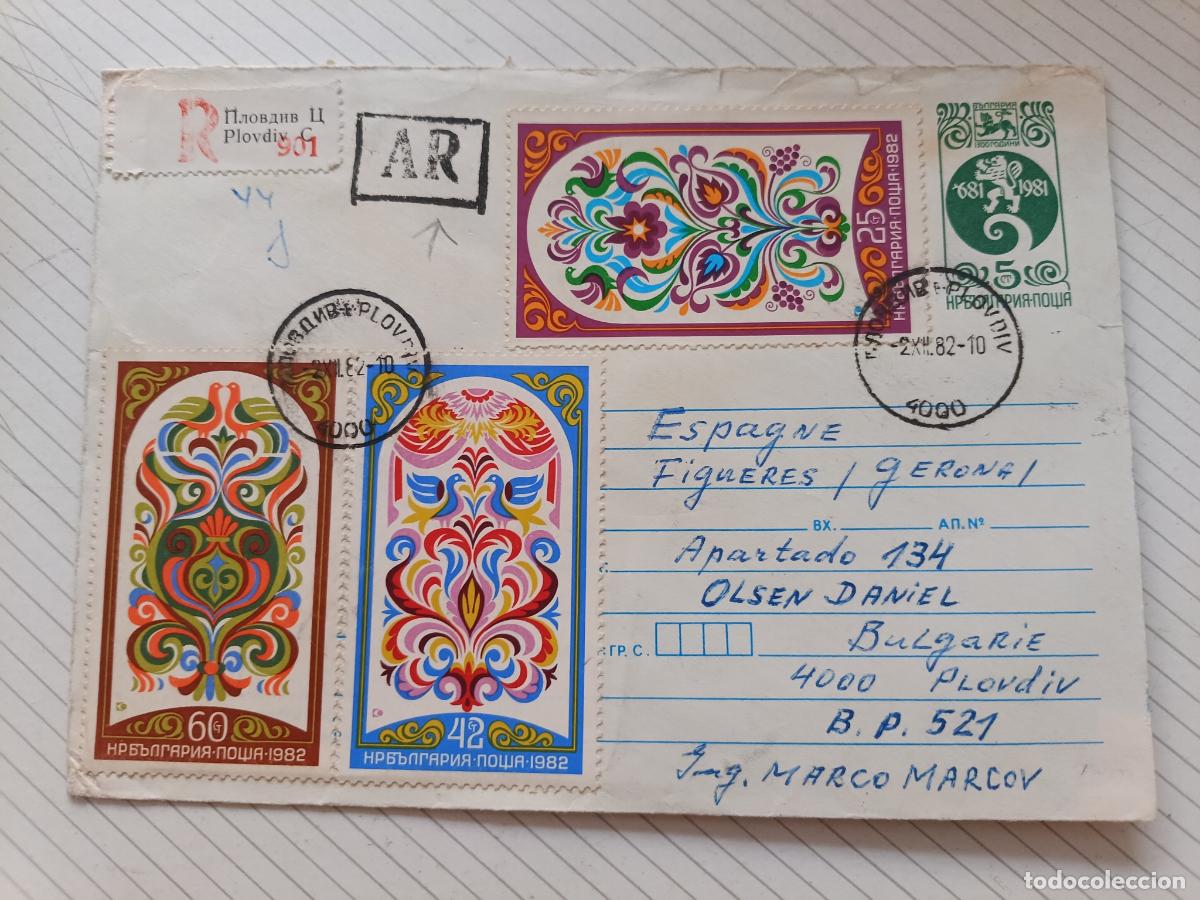 R
Пловдив Ц
Plovdiv C
901
AR
25 Ст
НРБЪЛГАРИЯ·ПОЩА·1982
БЪЛГАРИЯ
1300 ГОДИНИ
681 1981
5
НРБЪЛГАРИЯ·ПОЩА
ПЛОВДИВ-PLOVDIV
-2XII.82-10
4000
ПЛОВДИВ-PLOVDIV
-2XII.82-10
4000
60
НРБЪЛГАРИЯ·ПОЩА·1982
42
НРБЪЛГАРИЯ·ПОЩА·1982
Espagne
Figueres / Gerona/
ВХ. АП.№
Apartado 134
OLSEN DANIEL
ГР. С.
Bulgarie
4000 Plovdiv
B.P. 521
Ing. MARCO MARCOV
todocoleccion